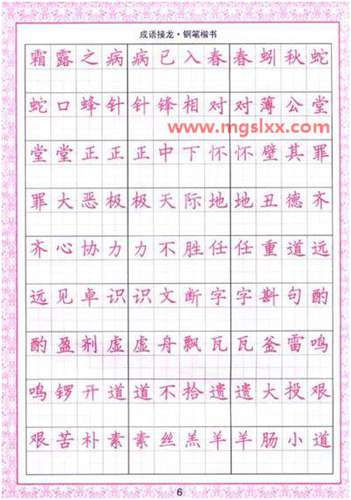 成语接龙·钢笔楷书
霜露之病病已入春春蚓秋蛇
蛇口蜂针针锋相对对薄公堂
www.mgslxx.com
堂堂正正正中下怀怀璧其罪
罪大恶极极天际地地丑德齐
齐心协力力不胜任任重道远
远见卓识识文断字字斟句酌
酌盈剂虚虚舟飘瓦瓦釜雷鸣
鸣锣开道道不拾遗遗大投艰
艰苦朴素素丝羔羊羊肠小道
6